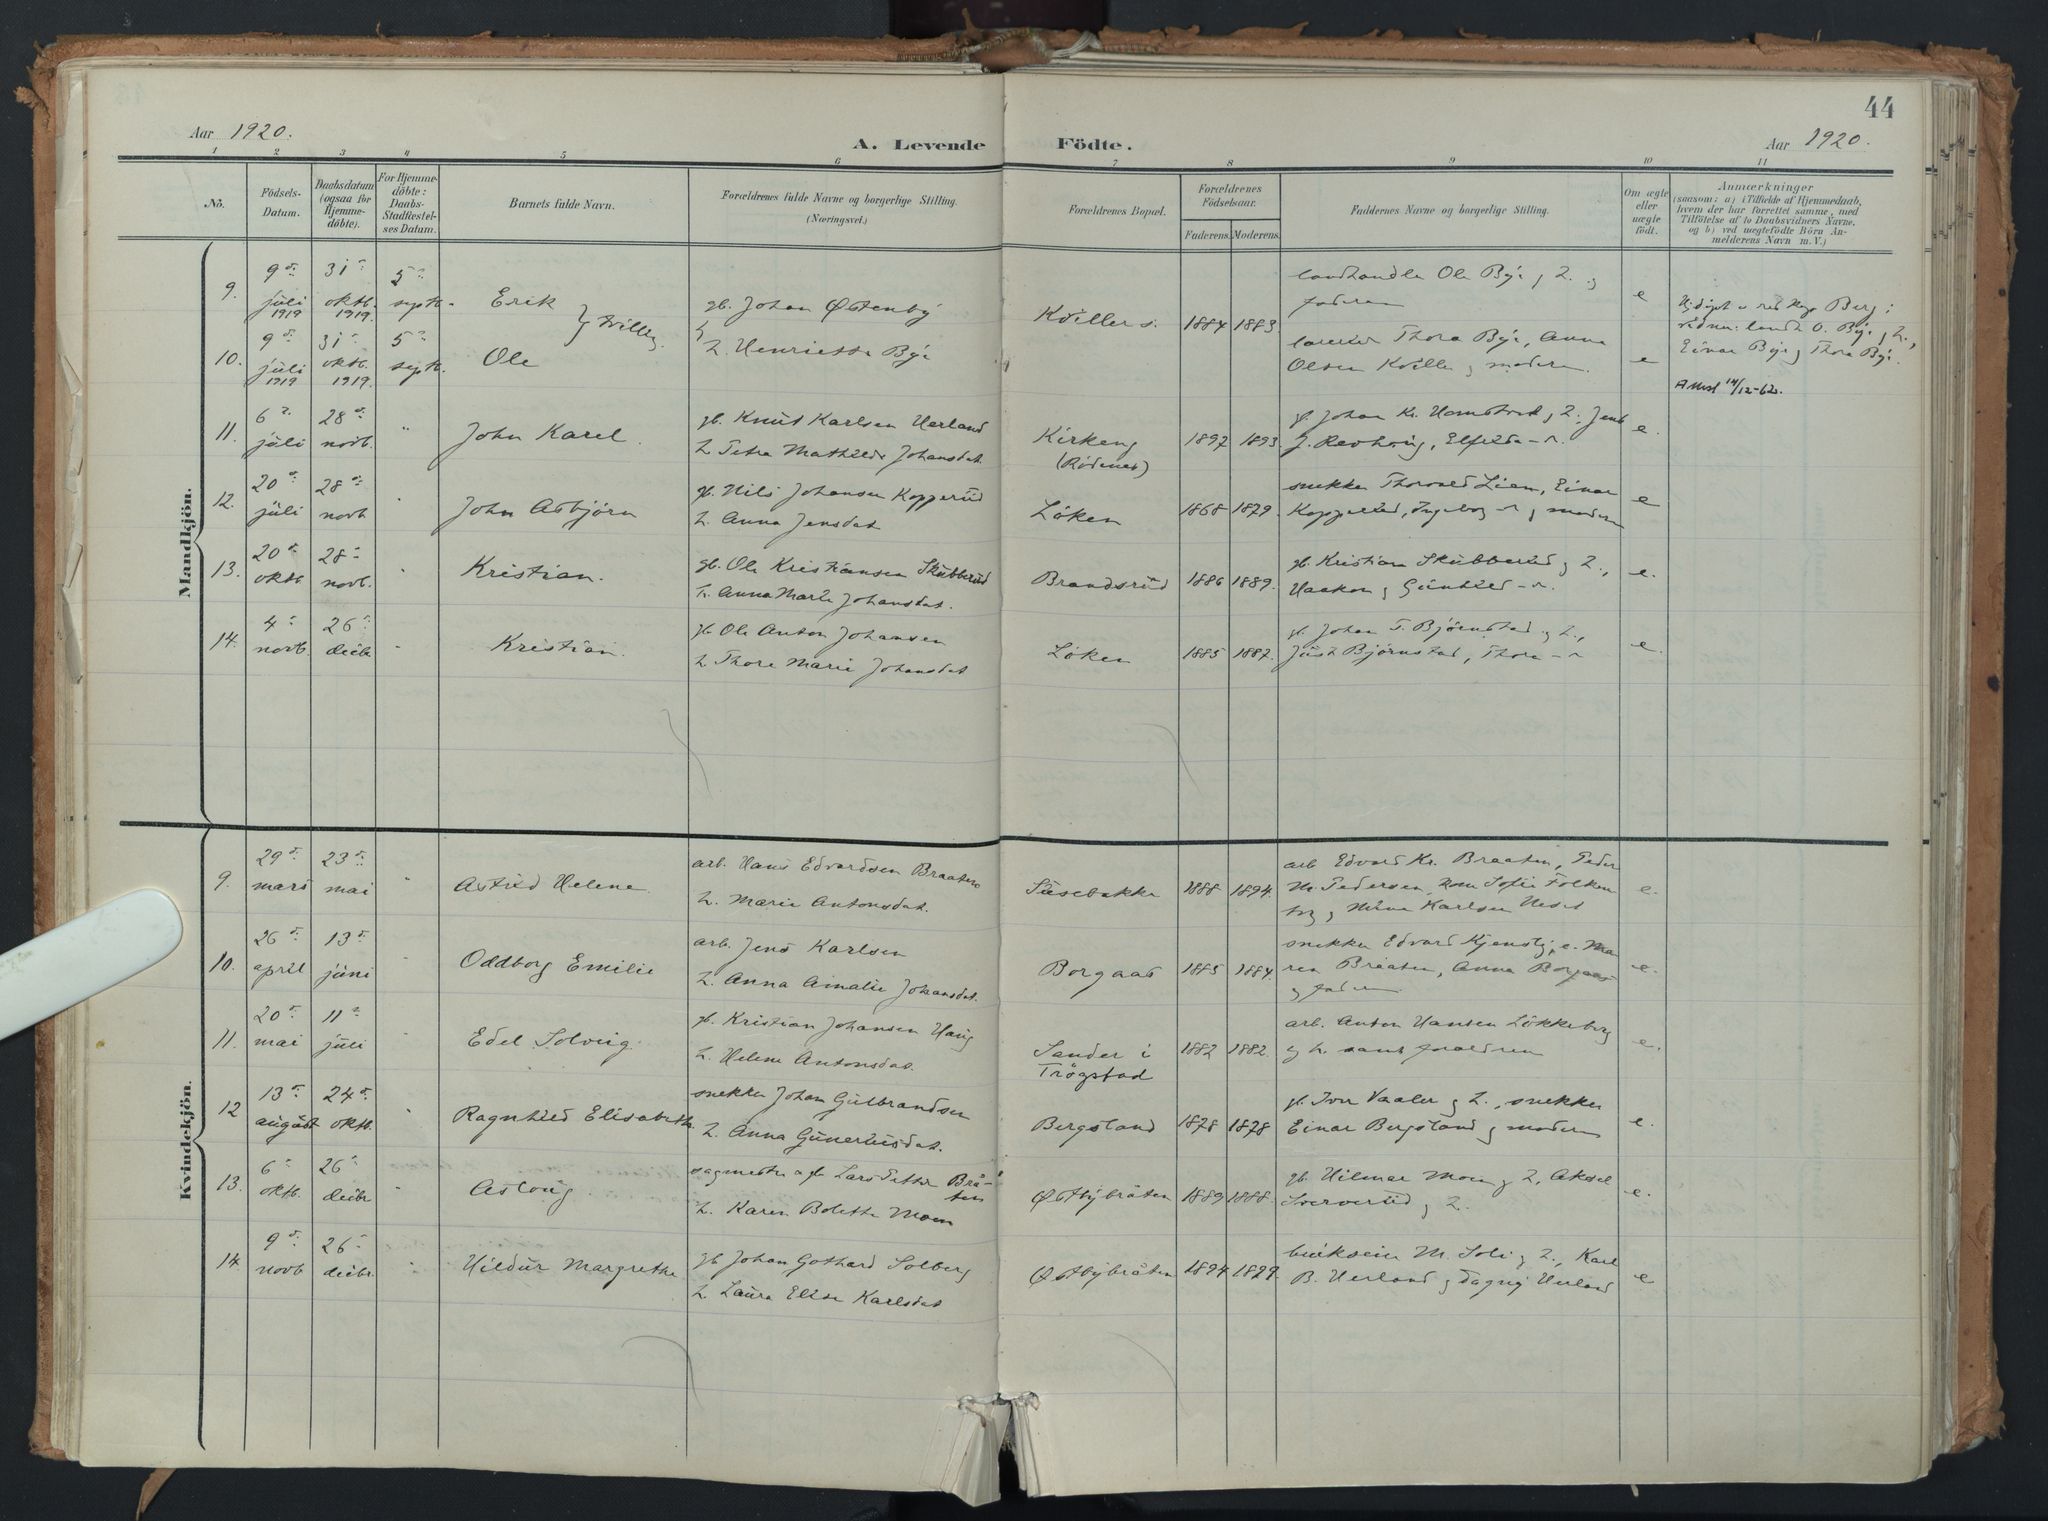 44
Aar 1920.
A. Levende Födte.
Aar 1920.
1 2 3 4 5 6 7 8 9 10 11
No.
Födsels-Datum.
Daabsdatum (ogsaa for Hjemmedöbte).
For Hjemmedöbte: Daabs-Stadfæstelses Datum.
Barnets fulde Navn.
Forældrenes fulde Navne og borgerlige Stilling. (Næringsvei.)
Forældrenes Bopæl.
Forældrenes Födselsaar.
Faderens. Moderens.
Faddernes Navne og borgerlige Stilling.
Om ægte eller uægte födt.
Anmærkninger
(saasom: a) i Tilfælde af Hjemmedaab, hvem der har forrettet samme, med Tilföielse af to Daabsvidners Navne, og b) ved uægtefödte Börn Anmelderens Navn m. V.)
Mandkjön.
9. 9 juli 1919 31 oktb. 1919. 5 septb. Erik } tvilling gb. Johan Østenby Kviller 1884 1883. landhandler Ole Bye og h. og faderen e
10. 9 juli 1919 31 oktb. 1919. 5 septb. Ole h. Henriette Bye Thora Bye, Anna Olsen Kviller og moderen. e
Berg: landh. O. Bye og h., Einar Bye og Thora Bye.
14/12-62.
11. 6 juli 28 novb. " John Karel. gb. Knut Karlsen Herland
h. Petra Mathilde Johansdat. Kirkeng (Rødenes) 1897 1893. gb. Johan Kr. og h., Jens J. Revhoug, e.
12. 20 juli 28 novb " John Asbjörn gb. Nils Johansen Kopperud
h. Anna Jensdat. Löken 1868 1879. snekker Thorvald Lien, Einar Kopperud, Ingeborg og moderen e
13. 20 oktb 28 novb. " Kristian. gb. Ole Kristiansen Skubberud
h. Anna Marie Johansdat. Brandsrud 1886 1889. gb. Kristian Skubberud og h., Haakon og Gunhild e.
14. 4 novb. 26 decbr " Kristian. gb. Ole Anton Johansen
h. Thora Marie Johansdat Löken 1885 1887. gb. Johan T. Bjørnstad og h., Just Bjørnstad, Thora e.
Kvindekjön.
9. 29 mars 23 mai " Astrid Helene arb. Hans Edvardsen Braaten
h. Marie Antonsdat. Susebakke 1888 1894. arb Edvard Kr. Braaten, Peder M. Pedersen, Sofie og Karlsen e.
10. 26 april 13 juni Oddborg Emilie arb. Jens Karlsen
h. Anna Amalie Johansdat. Borgaas 1885 1884. snekker Edvard Maren Braaten, Anna Borgaas og faderen e.
11. 20 mai 11 juli " Edel Solveig. gb. Kristian Johansen Haug
h. Helene Antonsdat. Sander i Trøgstad 1882 1882. arb. Anton Hansen Lökkeberg og h. samt forældrene e.
12 13 august 24 oktb. " Ragnhild Elisabeth snekker Johan Gulbrandsen
h. Anna Gunerhusdat. Bergsland 1878 1878 gb. Iver Vaaler og h., snekker Einar Bergsland og moderen e.
13. 6 oktb. 26 decbr " Aslaug sagmester og gb Lars Petter Bråten
h. Karen Bolette Moen Østbybråten 1889 1888. gb. Hilmar Moen og h., Aksel Sververud og h. e.
14. 9 novb 26 decbr " Hildur Margrethe gb Johan Gothard Solberg
h. Laura Elise Karlsdat Østbybråten 1894 1879. M. Soli og h., Karl B. Herland og Dagny Herland e